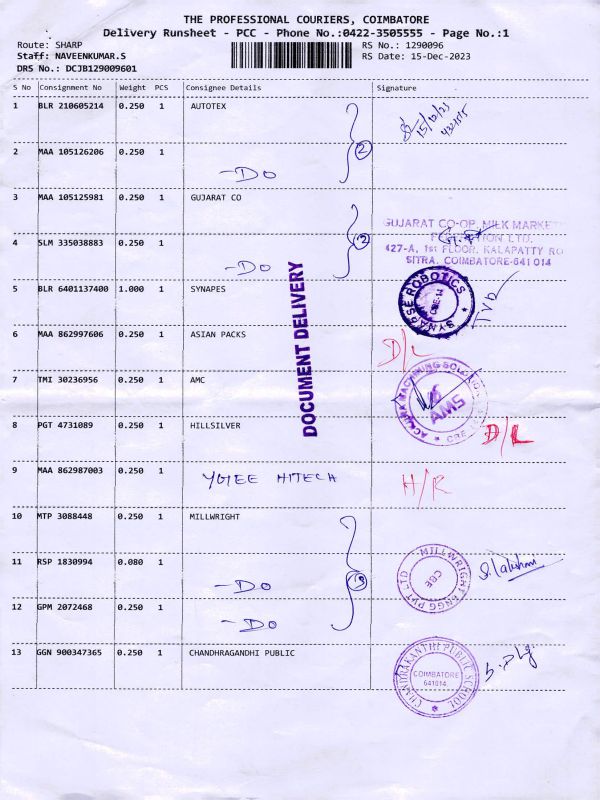 THE PROFESSIONAL COURIERS, COIMBATORE
Delivery Runsheet - PCC - Phone No.:0422-3505555 - Page No.:1
Route: SHARP
RS No.: 1290096
Staff: NAVEENKUMAR.S
RS Date: 15-Dec-2023
DRS No.: DCJB129009601
S No Consignment No Weight PCS Consignee Details Signature
1 BLR 210605214 0.250 1 AUTOTEX
15/12/23
2 MAA 105126206 0.250 1
-DO
2
3 MAA 105125981 0.250 1 GUJARAT CO
GUJARAT CO-OP. MILK MARKET
427-A, 1st FLOOR, KALAPATTY RO
SITRA, COIMBATORE-641 014
4 SLM 335038883 0.250 1
-DO
2
5 BLR 6401137400 1.000 1 SYNAPES
SYNAPSE ROBOTICS
CBE-14
DOCUMENT DELIVERY
6 MAA 862997606 0.250 1 ASIAN PACKS
D/L
7 TMI 30236956 0.250 1 AMC
AMS
8 PGT 4731089 0.250 1 HILLSILVER
D/L
9 MAA 862987003 0.250 1 YGIEE HITECH
H/R
10 MTP 3088448 0.250 1 MILLWRIGHT
MILLWRIGHT ENGG PVT LTD
CBE
11 RSP 1830994 0.080 1
-DO
12 GPM 2072468 0.250 1
-DO
13 GGN 900347365 0.250 1 CHANDHRAGANDHI PUBLIC
CHANDRAKANTHI PUBLIC SCHOOL
COIMBATORE
641014